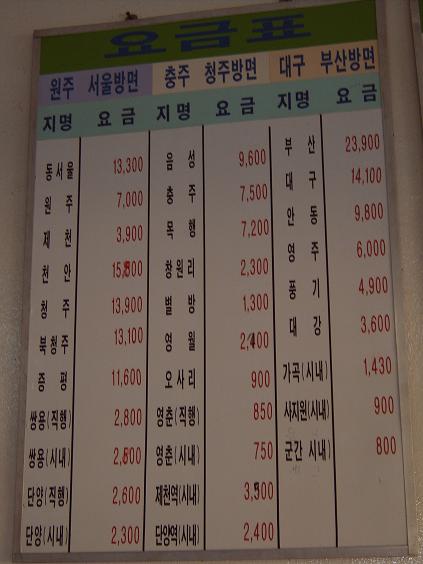 요금표
원주 서울방면 충주 청주방면 대구 부산방면
지명 요금 지명 요금 지명 요금
동서울 13,300 음성 9,600 부산 23,900
원주 7,000 충주 7,500 대구 14,100
제천 3,900 목행 7,200 안동 9,800
천안 2,300 영주 6,000
청주 13,900 별방 1,300 풍기 4,900
북청주 13,100 영월 2,400 대강 3,600
증평 11,600 오사리 900 가곡(시내) 1,430
쌍용(직행) 2,800 영춘(직행) 850 사지원(시내) 900
쌍용(시내) 2,500 영춘(시내) 750 군간 시내) 800
단양(직행) 2,600 제천역(시내) 3,500
단양(시내) 2,300 단양역(시내) 2,400